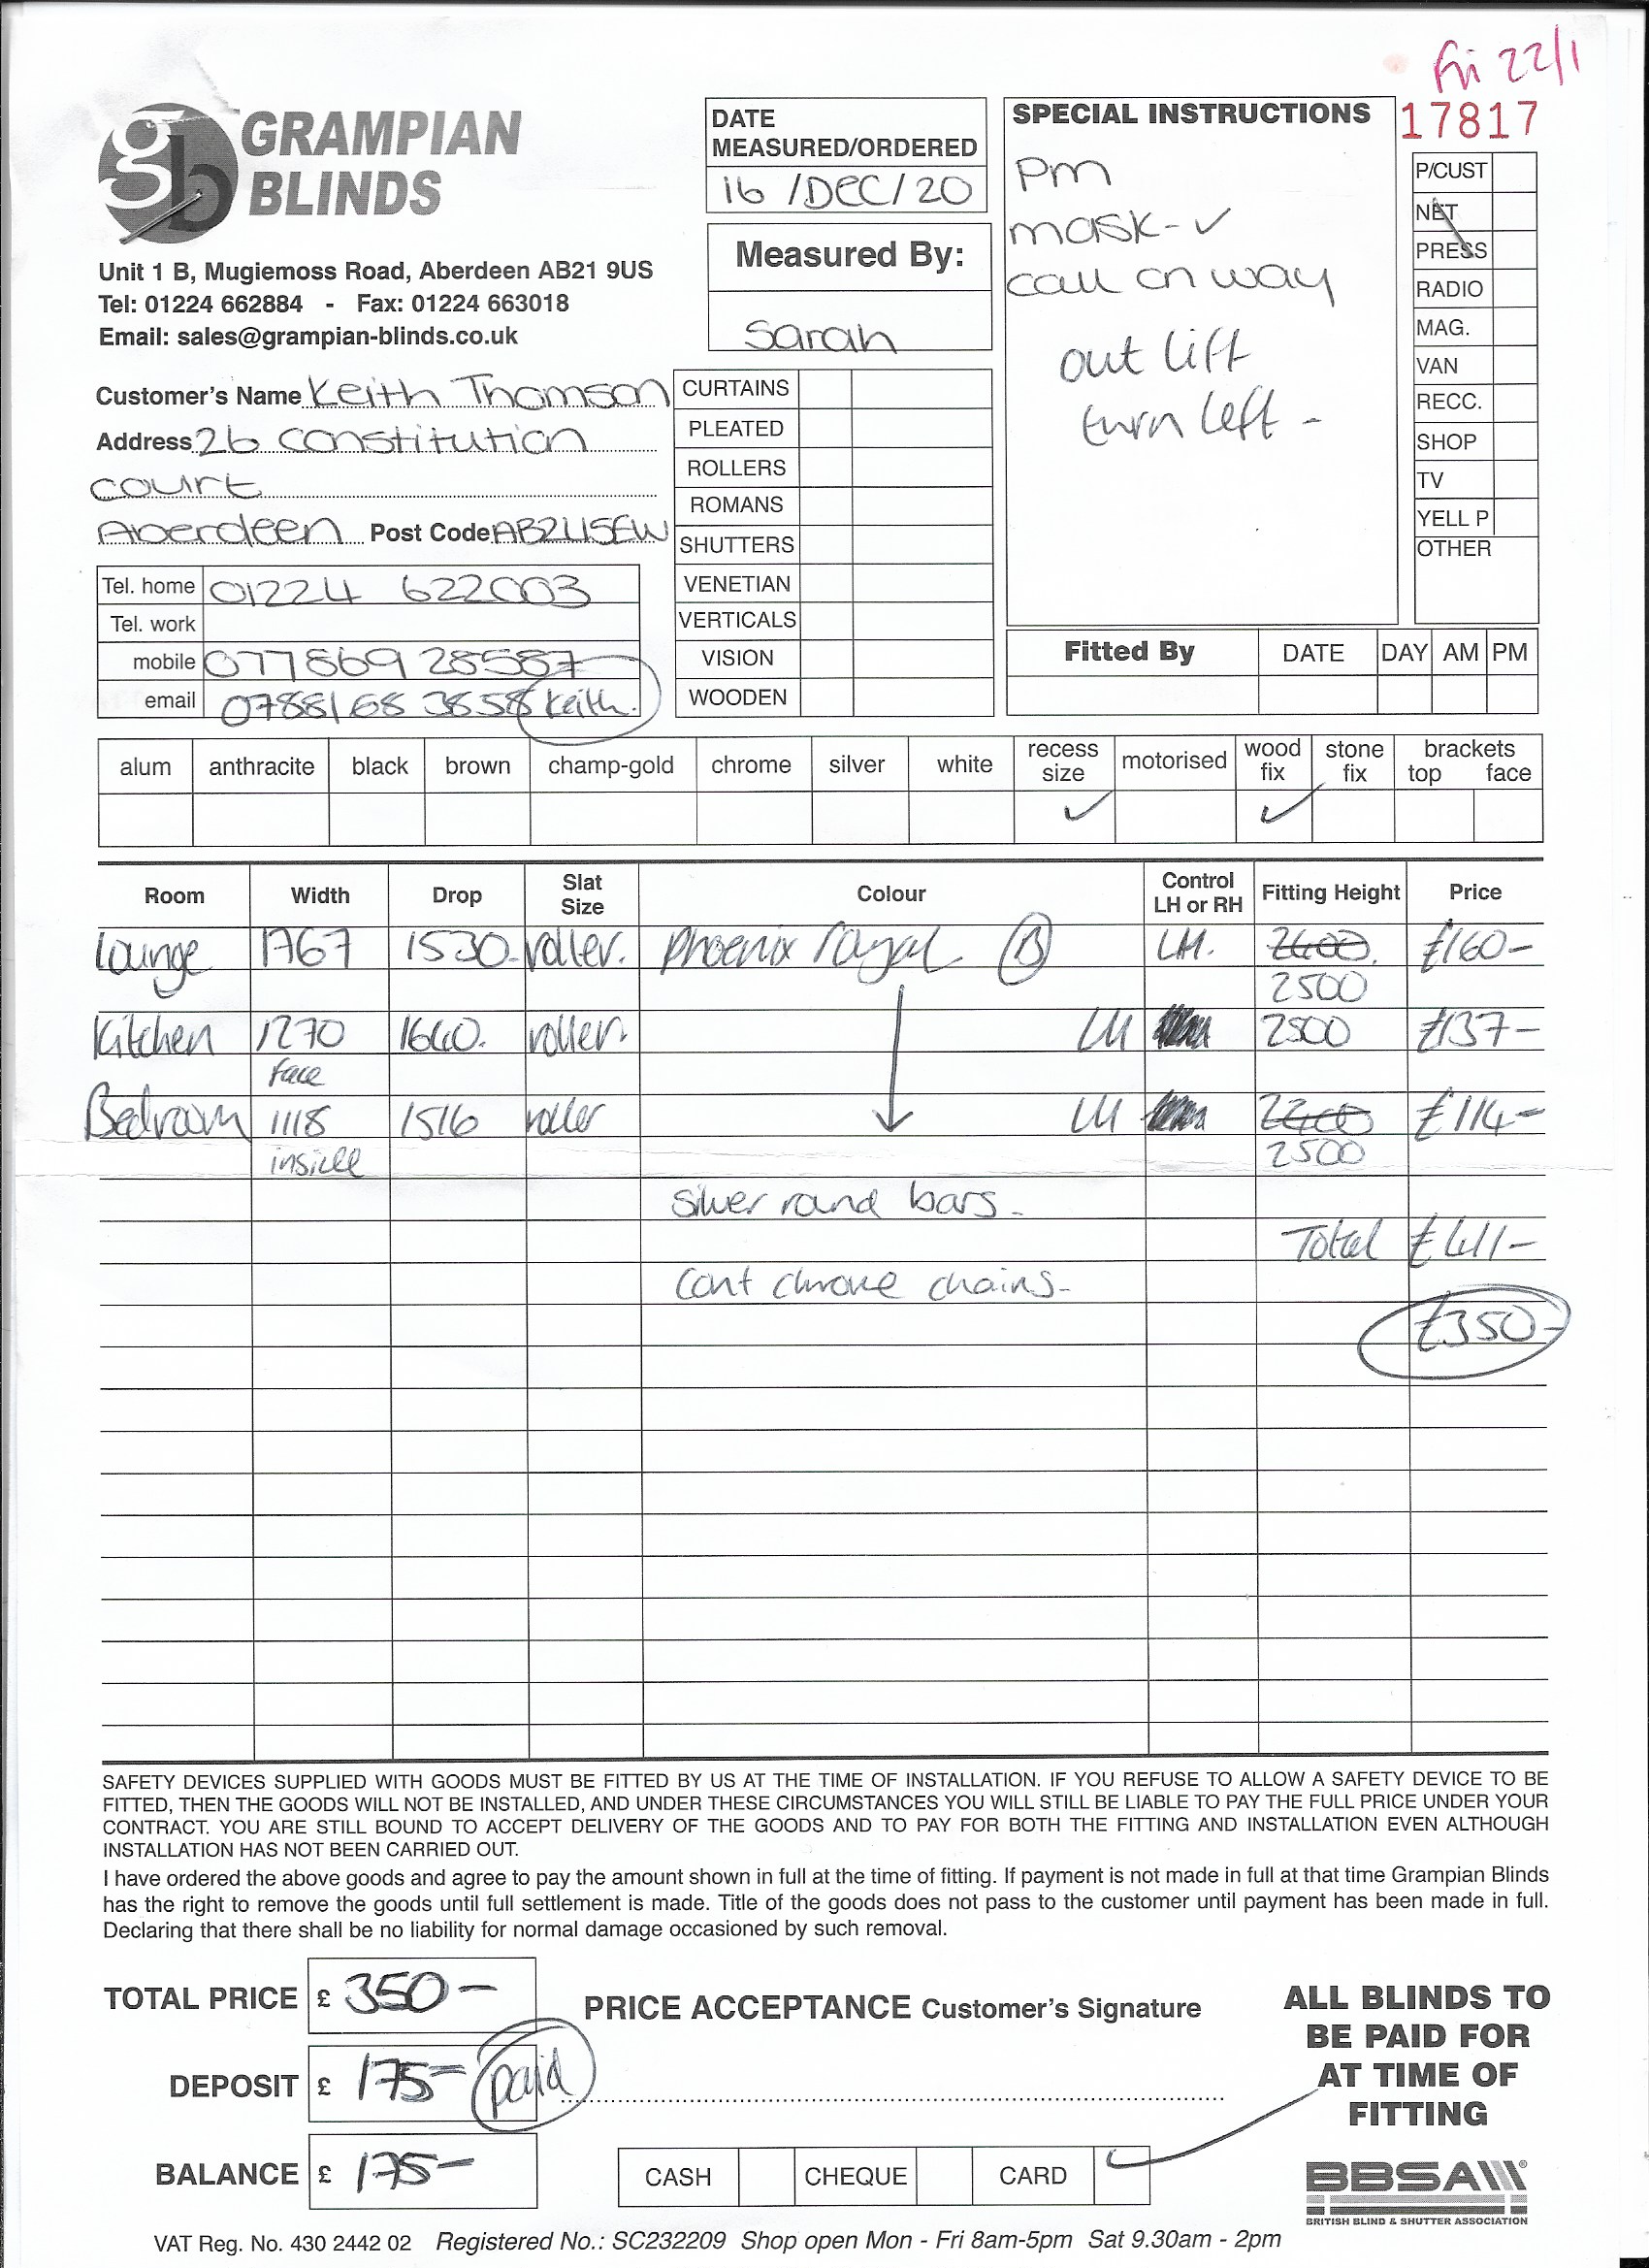 Fri 22/1
17817
gb GRAMPIAN
BLINDS
Unit 1 B, Mugiemoss Road, Aberdeen AB21 9US
Tel: 01224 662884 - Fax: 01224 663018
Email: sales@grampian-blinds.co.uk
DATE
MEASURED/ORDERED
16/DEC/20
Measured By:
Sarah
SPECIAL INSTRUCTIONS
pm
mask - ✓
call on way
out lift
turn left -
P/CUST
NET
PRESS
RADIO
MAG.
VAN
RECC.
SHOP
TV
YELL P
OTHER
Customer's Name Keith Thomson
Address 26 constitution
court
Aberdeen Post Code AB24 5EW
Tel. home 01224 622003
Tel. work
mobile 077869 28587
email 07881 68 3858 Keith.
CURTAINS
PLEATED
ROLLERS
ROMANS
SHUTTERS
VENETIAN
VERTICALS
VISION
WOODEN
Fitted By DATE DAY AM PM
alum anthracite black brown champ-gold chrome silver white recess size motorised wood fix stone fix brackets top face
✓ ✓
Room Width Drop Slat Size Colour Control LH or RH Fitting Height Price
Lounge 1767 1530 roller. Phoenix royal B LH. 2400. £160-
2500
Kitchen 1270 1640. roller. LH 2500 £137-
face
Bedroom 1118 1516 roller LH £114-
inside 2500
silver round bars -
Total £411-
cont chrome chains -
£350-
SAFETY DEVICES SUPPLIED WITH GOODS MUST BE FITTED BY US AT THE TIME OF INSTALLATION. IF YOU REFUSE TO ALLOW A SAFETY DEVICE TO BE
FITTED, THEN THE GOODS WILL NOT BE INSTALLED, AND UNDER THESE CIRCUMSTANCES YOU WILL STILL BE LIABLE TO PAY THE FULL PRICE UNDER YOUR
CONTRACT. YOU ARE STILL BOUND TO ACCEPT DELIVERY OF THE GOODS AND TO PAY FOR BOTH THE FITTING AND INSTALLATION EVEN ALTHOUGH
INSTALLATION HAS NOT BEEN CARRIED OUT.
I have ordered the above goods and agree to pay the amount shown in full at the time of fitting. If payment is not made in full at that time Grampian Blinds
has the right to remove the goods until full settlement is made. Title of the goods does not pass to the customer until payment has been made in full.
Declaring that there shall be no liability for normal damage occasioned by such removal.
TOTAL PRICE £ 350-
PRICE ACCEPTANCE Customer's Signature
DEPOSIT £ 175- paid
BALANCE £ 175-
CASH CHEQUE CARD ✓
ALL BLINDS TO
BE PAID FOR
AT TIME OF
FITTING
BBSA
BRITISH BLIND & SHUTTER ASSOCIATION
VAT Reg. No. 430 2442 02 Registered No.: SC232209 Shop open Mon - Fri 8am-5pm Sat 9.30am - 2pm